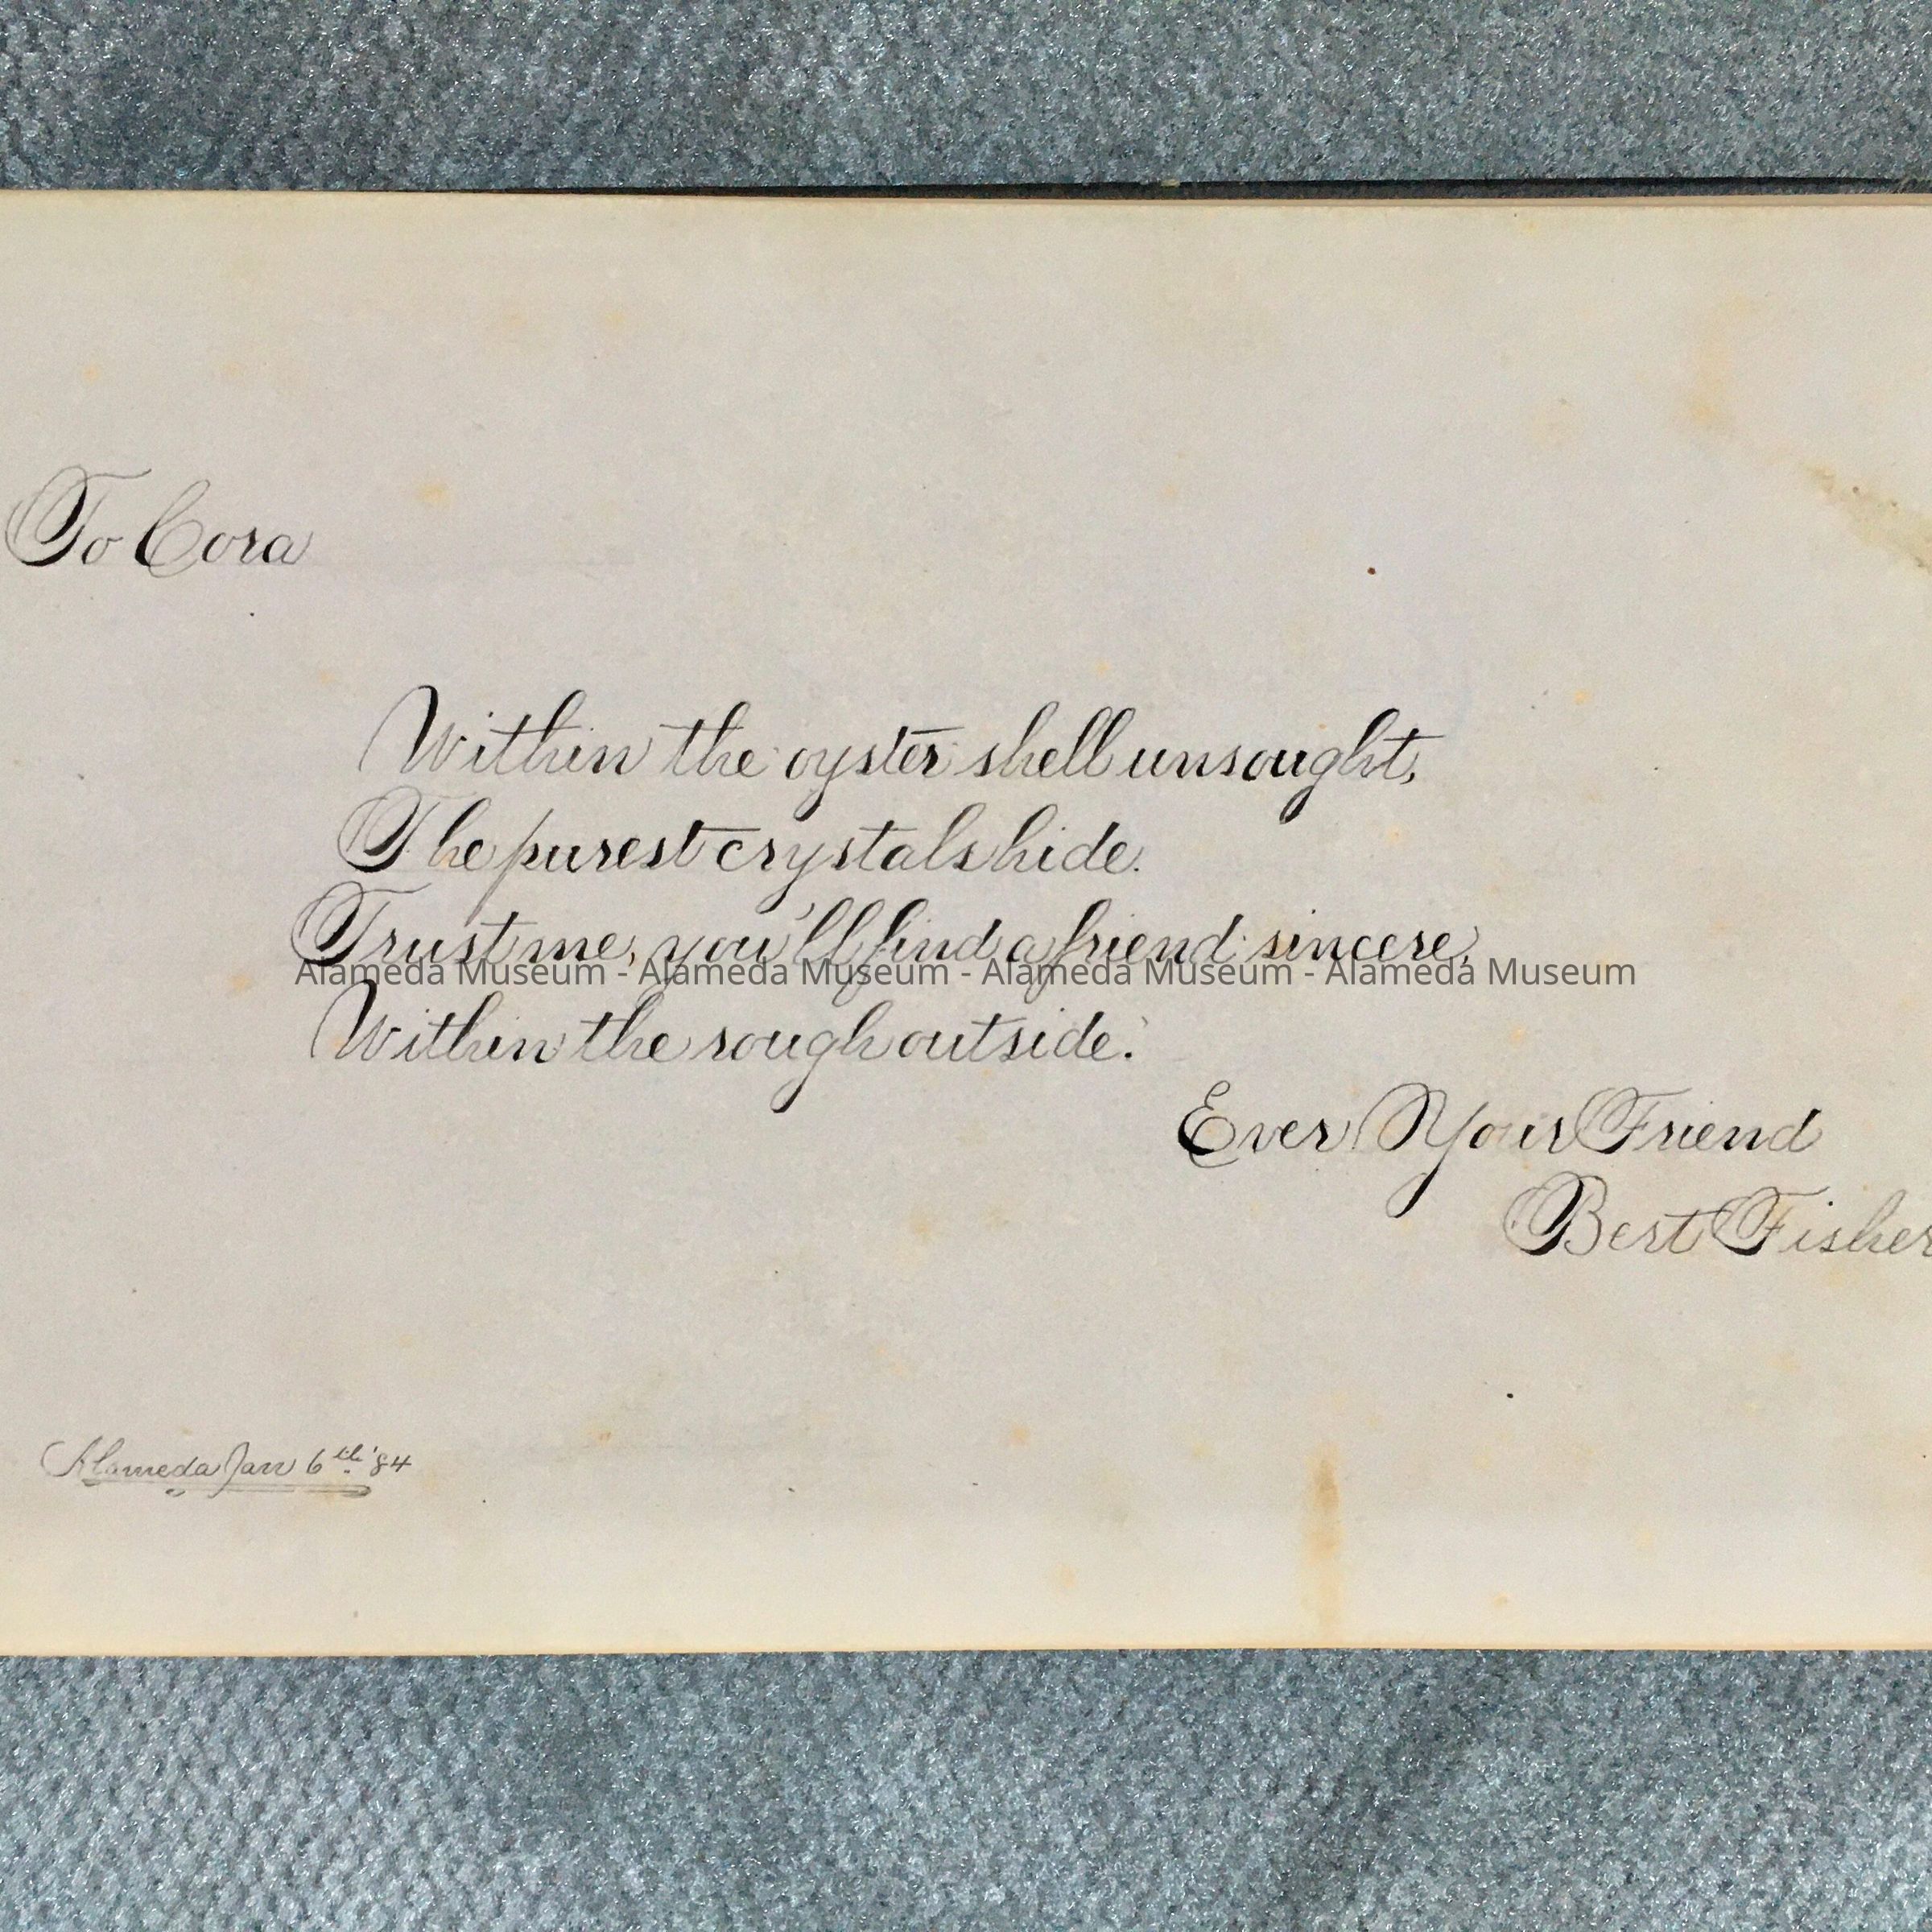 To Cora
Within the oyster shell unsought,
The purest crystals hide.
Trust me, you'll find a friend sincere,
Alameda Museum - Alameda Museum - Alameda Museum - Alameda Museum
Within the rough outside.
Ever Your Friend
Bert Fisher
Alameda Jan 6th '84